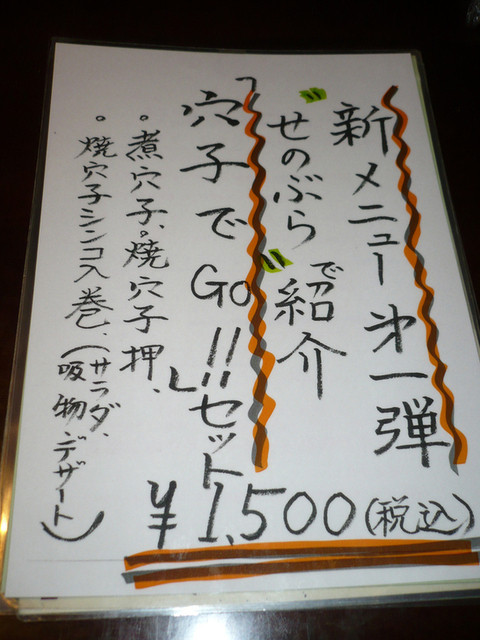 新メニュー第一弾
"せのぶら"で紹介
「穴子でGo!!」セット
¥1,500(税込)
。煮穴子。焼穴子押、
。焼穴子シンコ入巻、(サラダ、
吸物、デザート)